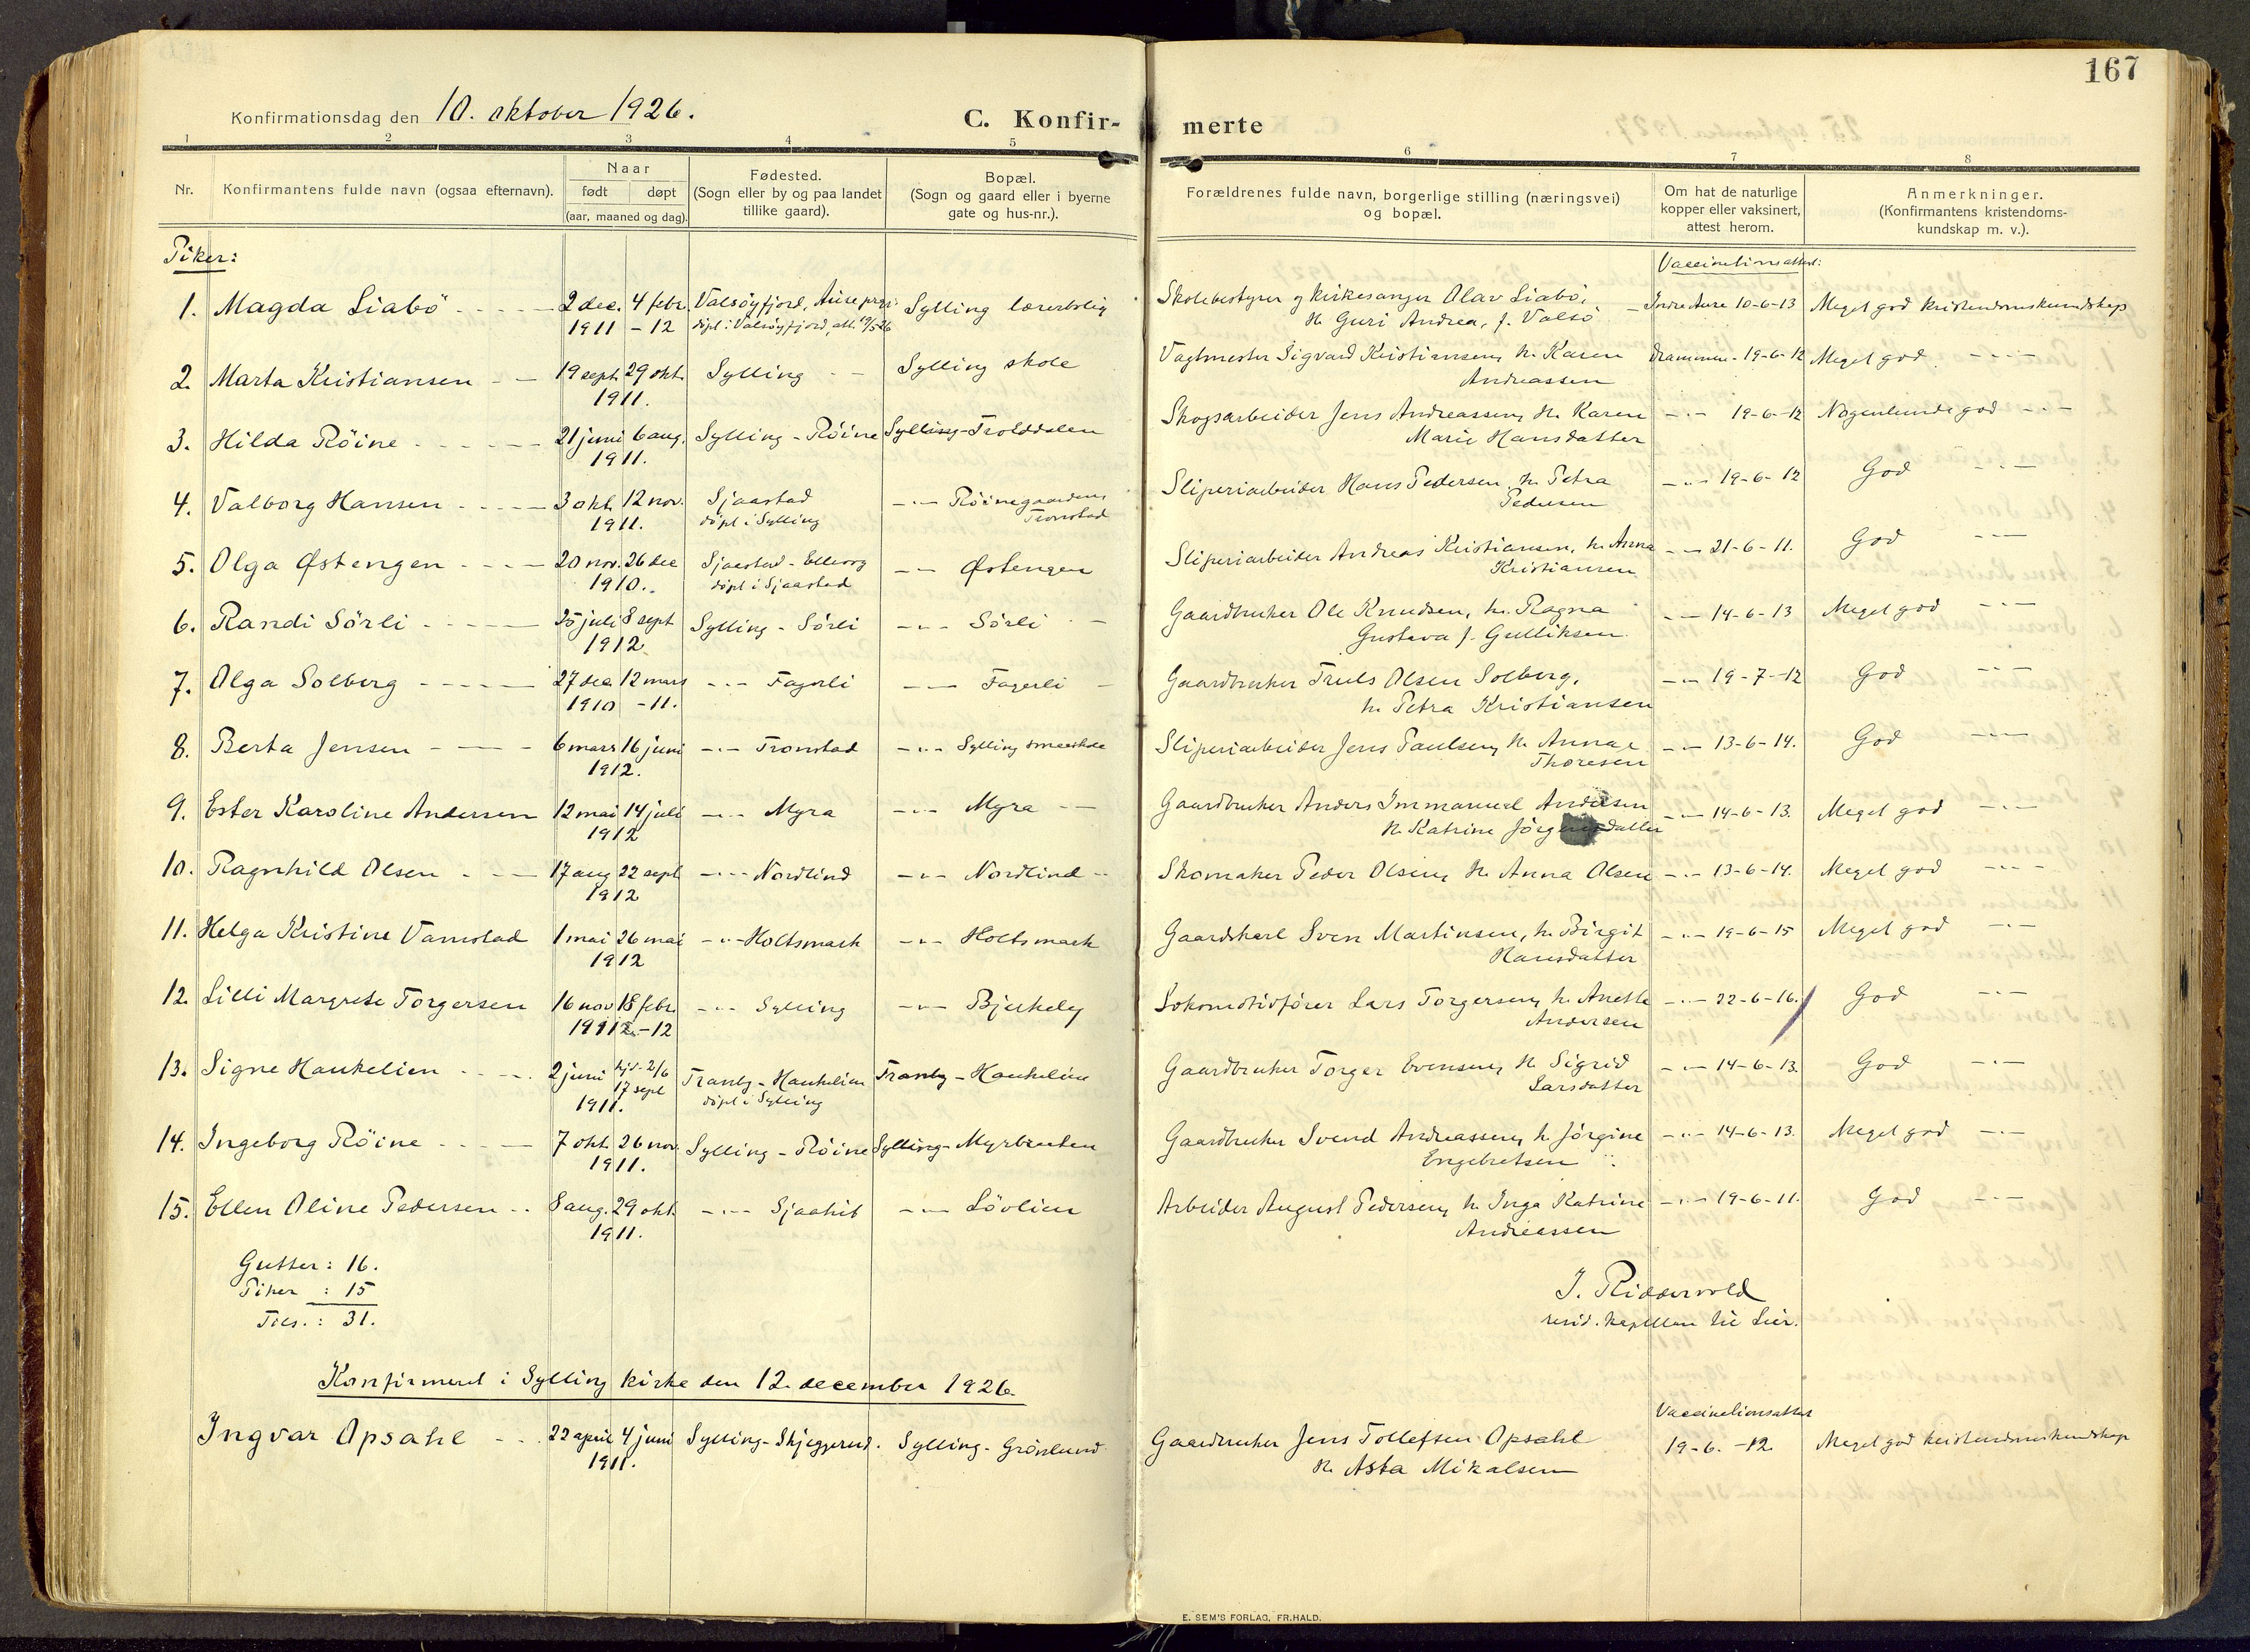 167
Konfirmationsdag den 10. oktober 1926.
C. Konfir- merte
1 2 3 4 5 6 7 8
Nr.
Konfirmantens fulde navn (ogsaa efternavn).
Naar
født døpt
(aar, maaned og dag).
Fødested.
(Sogn eller by og paa landet
tillike gaard).
Bopæl.
(Sogn og gaard eller i byerne
gate og hus-nr.).
Forældrenes fulde navn, borgerlige stilling (næringsvei)
og bopæl.
Om hat de naturlige
kopper eller vaksinert,
attest herom.
Anmerkninger.
(Konfirmantens kristendoms-
kundskap m. v.).
Piker:
Vaccinationsattest:
1. Magda Liabö - - - - 2 dec. 4 febr. Valsöyfjord, Aure Sylling lærerbolig Skolebestyrer og kirkesanger Olav Liabö, Indre Aure 10-6-13 Meget god kristendomskundskap
1911 - 12 döpt i Valsöyfjord, att. 19/5-26 H. Guri Andrea, f. Valsö
2. Marta Kristiansen - - 19 sept. 29 okt. Sylling - - Sylling skole Vagtmester Sigvard Kristiansen, h. Karen Drammen - 19-6-12 Meget god - " -
1911. Andreassen
3. Hilda Röine - - - - 21 juni 6 aug. Sylling - Röine Sylling - Trolddalen Skogsarbeider Jens Andreassen, H. Karen - " - 19-6-12 Nogenlunde god - " -
1911. Marie Hansdatter
4. Valborg Hansen - - - - 3 okt. 12 nov. Sjaastad - " - Röinegaardens Sliperiarbeider Hans Pedersen, h. Petra - " - 19-6-12 God - " -
1911. döpt i Sylling Tronstad Pedersen
5. Olga Østengen - - - - 20 nov. 26 dec Sjaastad - - " - Østengen Sliperiarbeider Andreas Kristiansen, h. Anna - " - 21-6-11. God - " -
1910. döpt i Sjaastad Kristiansen
6. Randi Sörli - - - - 25 juli 8 sept Sylling - Sörli - " - Sörli - Gaardbruker Ole Knudsen, h. Ragna - " - 14-6-13 Meget god - " -
1912 Gustava f. Gulliksen.
7. Olga Solberg - - - - 27 dec. 12 mars - " - Fagerli - " - Fagerli - Gaardbruker Truls Olsen Solberg, - " - 19-7-12 God - " -
1910 - 11. h. Petra Kristiansen
8. Berta Jensen - - - - 6 mars 16 juni - " - Tronstad - " - Sylling Sliperiarbeider Jens Paulsen, H. Anna - " - 13-6-14. God - " -
1912. Thoresen
9. Ester Karoline Andersen 12 mai 14 juli - " - Myra - " - Myra - - Gaardbruker Anders Immanuel Andersen - " - 14-6-13. Meget god - " -
1912 H. Katrine Jörgensdatter
10. Ragnhild Olsen - - - 17 aug 22 sept - " - Nordlind - " - Nordlind - - Skomaker Peder Olsen, H. Anna Olsen - " - 13-6-14. Meget god - " -
1912
11. Helga Kristine Vamstad 1 mai 26 mai - " - Holtsmark - " - Holtsmark Gaardskarl Sven Martinsen, h. Birgit - " - 19-6-15 Meget god - " -
1912 Hansdatter
12. Lilli Margrete Torgersen 16 nov 18 febr. - " - Sylling - " - Bjerkely Lokomotivförer Lars Torgersen, h. Anette - " - 22-6-16. God - " -
1911 - 12 Andersen
13. Signe Haukelien - - - 2 juni hjd. 2/6 Tranby - Haukelien Tranby - Haukelien Gaardbruker Torger Evensen, H. Sigrid - " - 14-6-13. God - " -
17 sept döpt i Sylling Larsdatter
1911.
14. Ingeborg Röine - - - - 7 okt. 26 nov. Sylling - Röine Sylling - Myrbraaten Gaardbruker Svend Andreassen, h. Jörgine - " - 14-6-13. Meget god - " -
1911. Engebretsen
15. Ellen Oline Pedersen - - 8 aug. 29 okt. - " - - " - Lövlien Arbeider August Pedersen, h. Inga Katrine - " - 19-6-11. God - " -
1911. Andreassen
Gutter: 16.
Piker : 15
Tils. : 31.
J. Riddervold
resid. kapellan til Lier.
Konfirmeret i Sylling kirke den 12. december 1926.
Vaccinationsattest
Ingvar Opsahl - - 22 april 4 juni Sylling - Skjeggerud. Sylling - Grönlund Gaardbruker Jens Tollefsen Opsahl 19-6.-12. Meget god kristendomskundskap
1911. H. Asta Mikalsen
E. SEM'S FORLAG, FR.HALD.